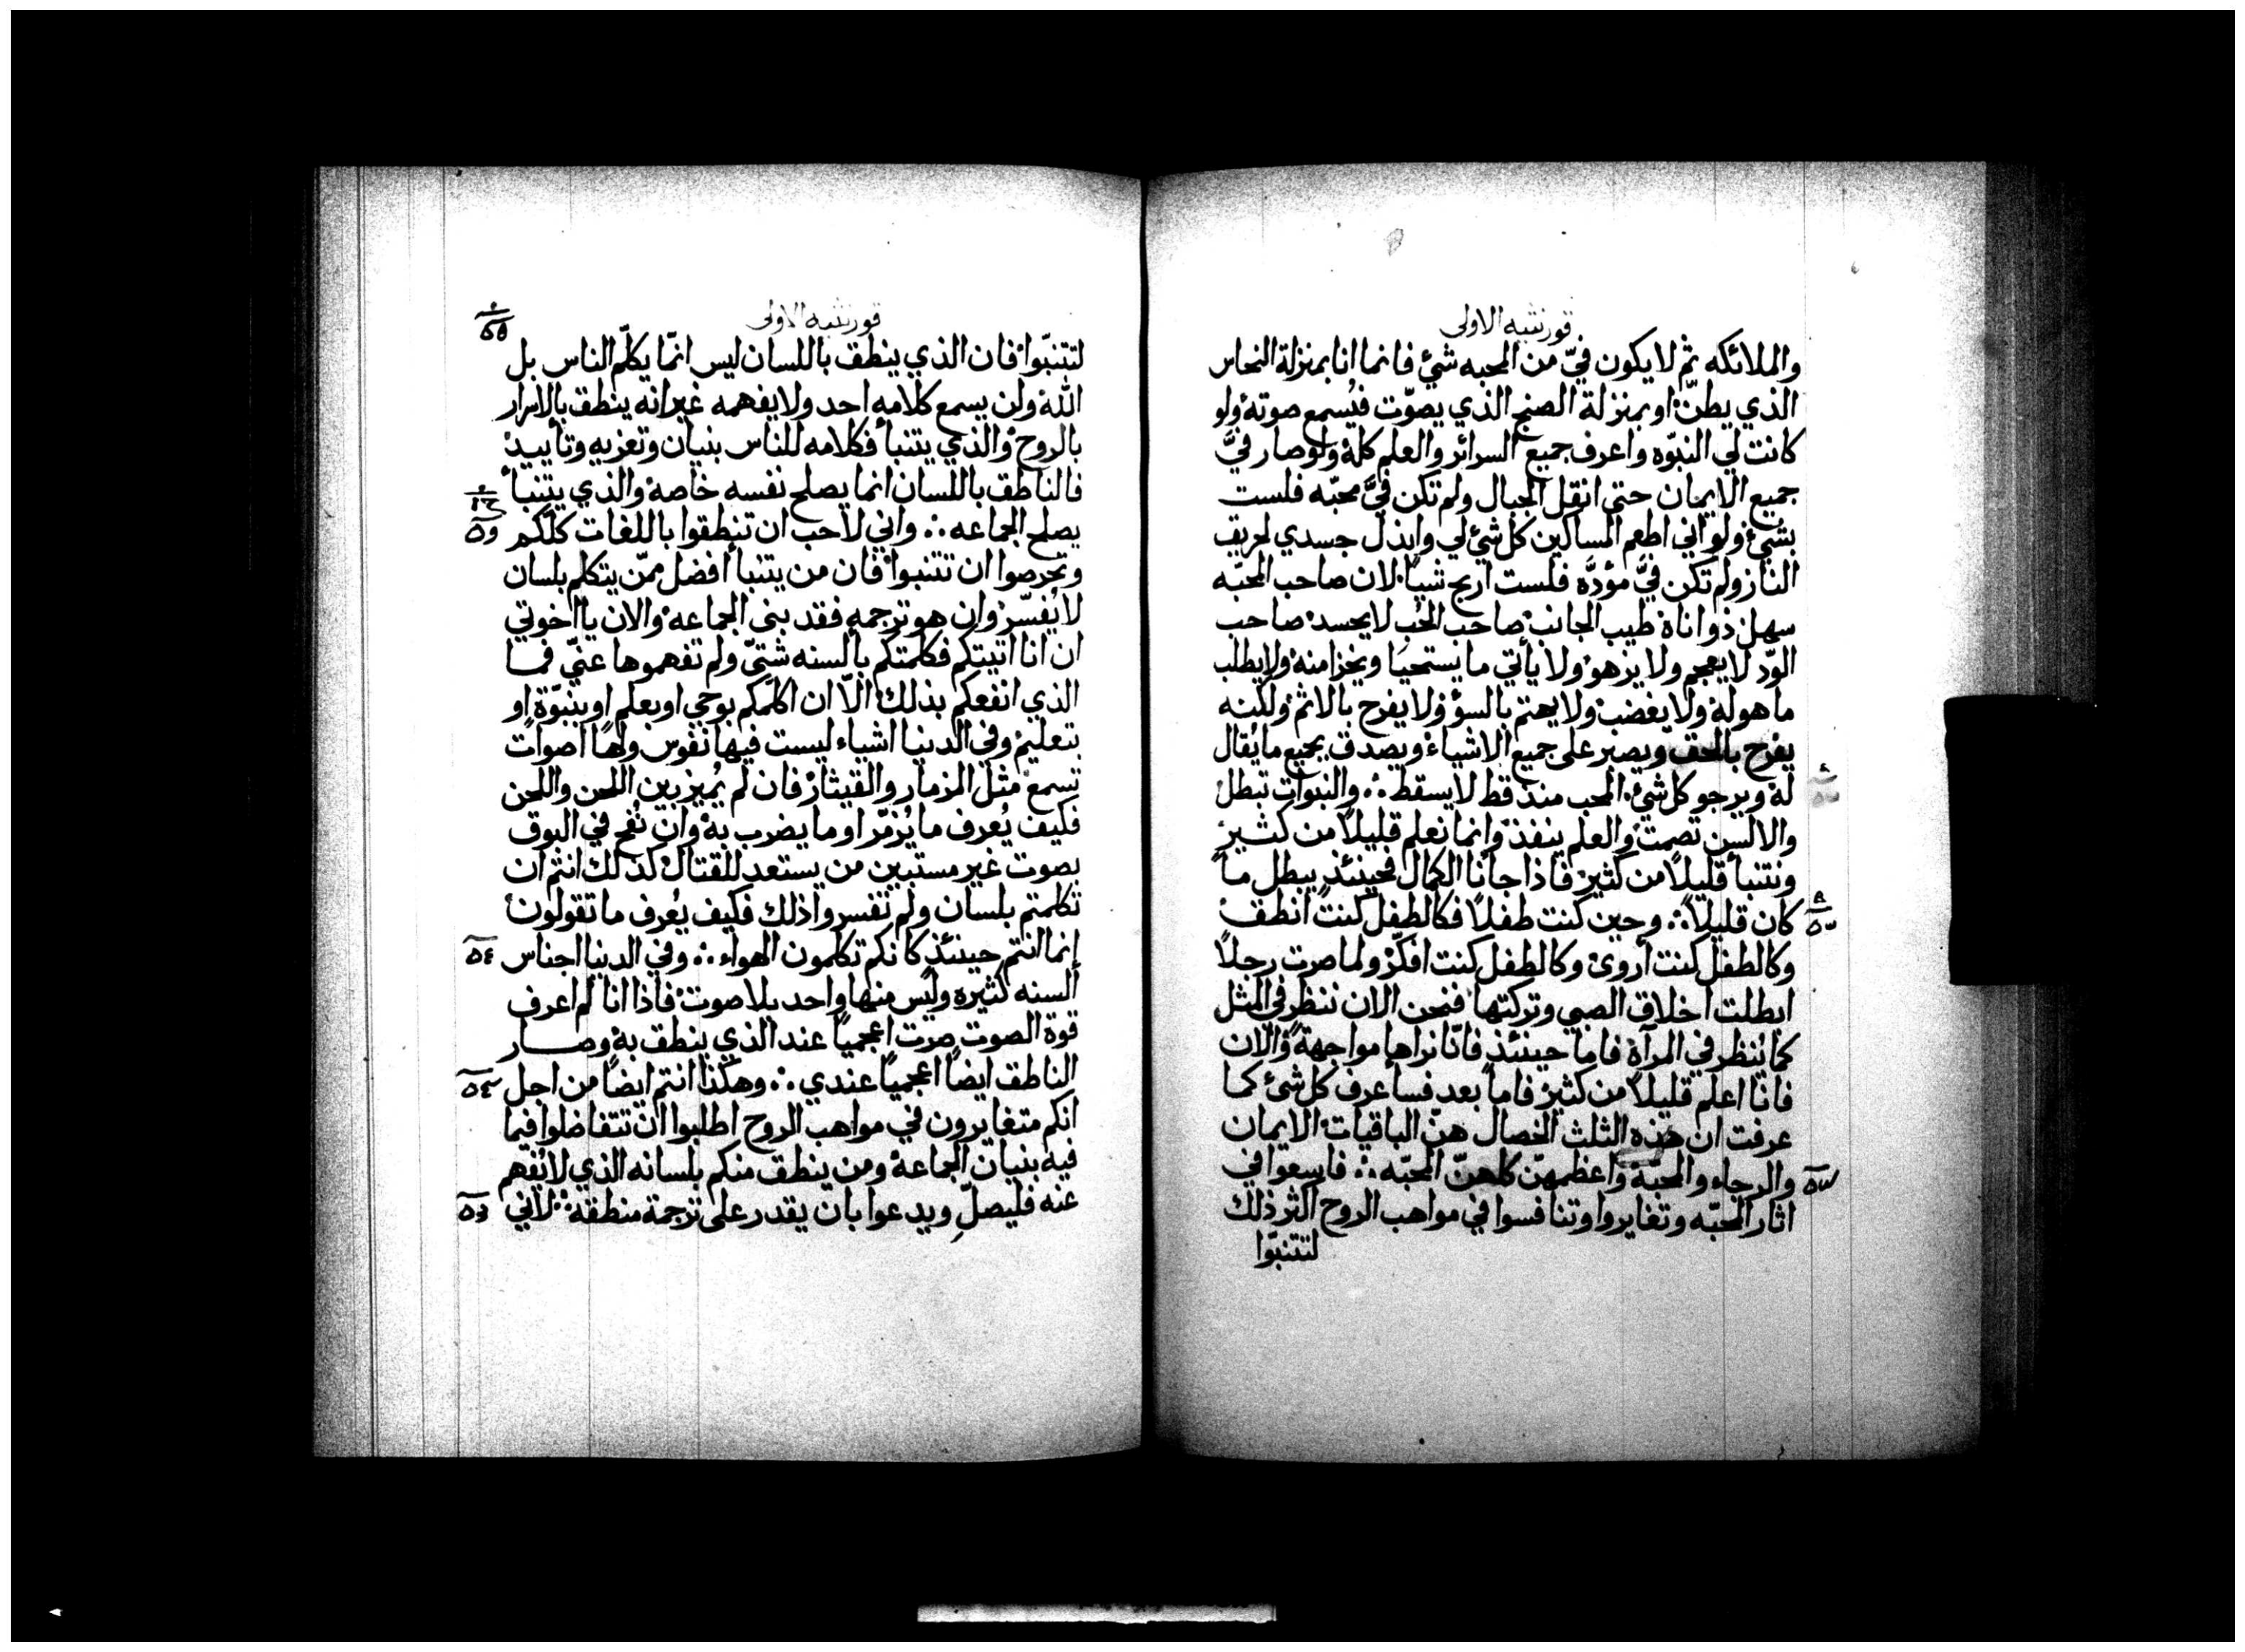 قورنثيه الاولى
والملائكه ثم لا يكون فيّ من المحبه شئ فانما انا بمنزلة النحاس
الذي يطنّ او بمنزلة الصنج الذي يصوّت فيُسمع صوته ولو
كانت لي النبوّه واعرف جميع السرائر والعلم كله ولو صار فيَّ
جميع الايمان حتى انقل الجبال ولم تكن فيَّ محبّه فلست
بشئ ولو اني اطعم المساكين كل شئ لي وابذل جسدي لحريق
النار ولم تكن فيَّ مؤدّه فلست اربح شيئاً لان صاحب المحبّه
سهل ذو اناة طيب الجانب صاحب الحُب لا يحسد صاحب
الوّد لا يعجم ولا يزهو ولا يأتي ما يستحيا ويخزا منه ولا يطلب
ما هو له ولا يغضب ولا يهتم بالسؤ ولا يفرح بالاثم ولكنه
يفرح بالحق ويصبر على جميع الاشياء ويصدق بجميع ما يُقال
له ويرجو كل شئ المحب منذ قط لا يسقط ؞ والنبوات تبطل
والالسن تصمت والعلم ينفذ وانما نعلم قليلاً من كثير
ونتنبأ قليلاً من كثير فاذا جانا الكمال فحينئذٍ يبطل ما
كان قليلاً ؞ وحين كنت طفلاً فكالطفل كنت انطق
وكالطفل كنت أروى وكالطفل كنت افكّر ولما صرت رجلاً
ابطلت اخلاق الصبي وتركتها فنحن الان ننظر في المثل
كما يُنظر في المرآة فاما حينئذٍ فانّا نراها مواجهةً والآن
فانا اعلم قليلاً من كثير فاما بعد فسأعرف كل شئ كما
عرفت ان هذه الثلث الخصال هنّ الباقيات الايمان
والرجاء والمحبّة واعظمهنّ كلهنّ المحبّه ؞ فاسعوا في
اثار المحبّه وتغايروا وتنافسوا في مواهب الروح اكثر ذلك
لتتنبّوا
قورنثيه الاولى
لتتنبّوا فان الذي ينطق باللسان ليس انمّا يكلّم الناس بل
الله ولن يسمع كلامه احد ولا يفهمه غير انه ينطق بالاسرار
بالروح والذي يتنبأ فكلامه للناس بنيان وتعزيه وتأييد
فالناطق باللسان انما يصلح نفسه خاصة والذي يتنبأ
يصلح الجماعه ؞ واني لاحب ان تنطقوا باللغات كلكم
وتحرصوا ان تتنبوا فان من يتنبأ أفضل ممّن يتكلم بلسان
لا يُفسّر وان هو ترجمه فقد بنى الجماعه والان يا اخوتي
ان انا اتيتكم فكلمتكم بألسنه شتّى ولم تفهموها عنّي فما
الذي انفعكم بذلك الّا ان اكلّمكم بوحي او بعلم او بنبوّة او
بتعليم وفي الدنيا اشياء ليست فيها نفوس ولها اصوات
تسمع مثل المزمار والقيثار فان لم يُميز بين اللحن واللحن
فكيف يُعرف ما يُزمّر او ما يضرب به وان نُفخ في البوق
بصوت غير مستبين من يستعد للقتال كذلك انتم ان
تكلمتم بلسان ولم تفسروا ذلك فكيف يُعرف ما تقولون
إنما انتم حينئذٍ كانكم تكلمون الهواء ؞ وفي الدنيا اجناس
ألسنه كثيره وليس منها واحد بلا صوت فاذا انا لم اعرف
قوة الصوت صرت اعجمياً عند الذي ينطق به وصار
الناطق ايضاً اعجمياً عندي ؞ وهكذا انتم ايضاً من اجل
انكم متغايرون في مواهب الروح اطلبوا ان تتفاضلوا فيما
فيه بنيان الجماعة ومن ينطق منكم بلسانه الذي لا يُفهم
عنه فليصلِّ ويدعوا بان يقدر على ترجمة منطقه ؞ لاني